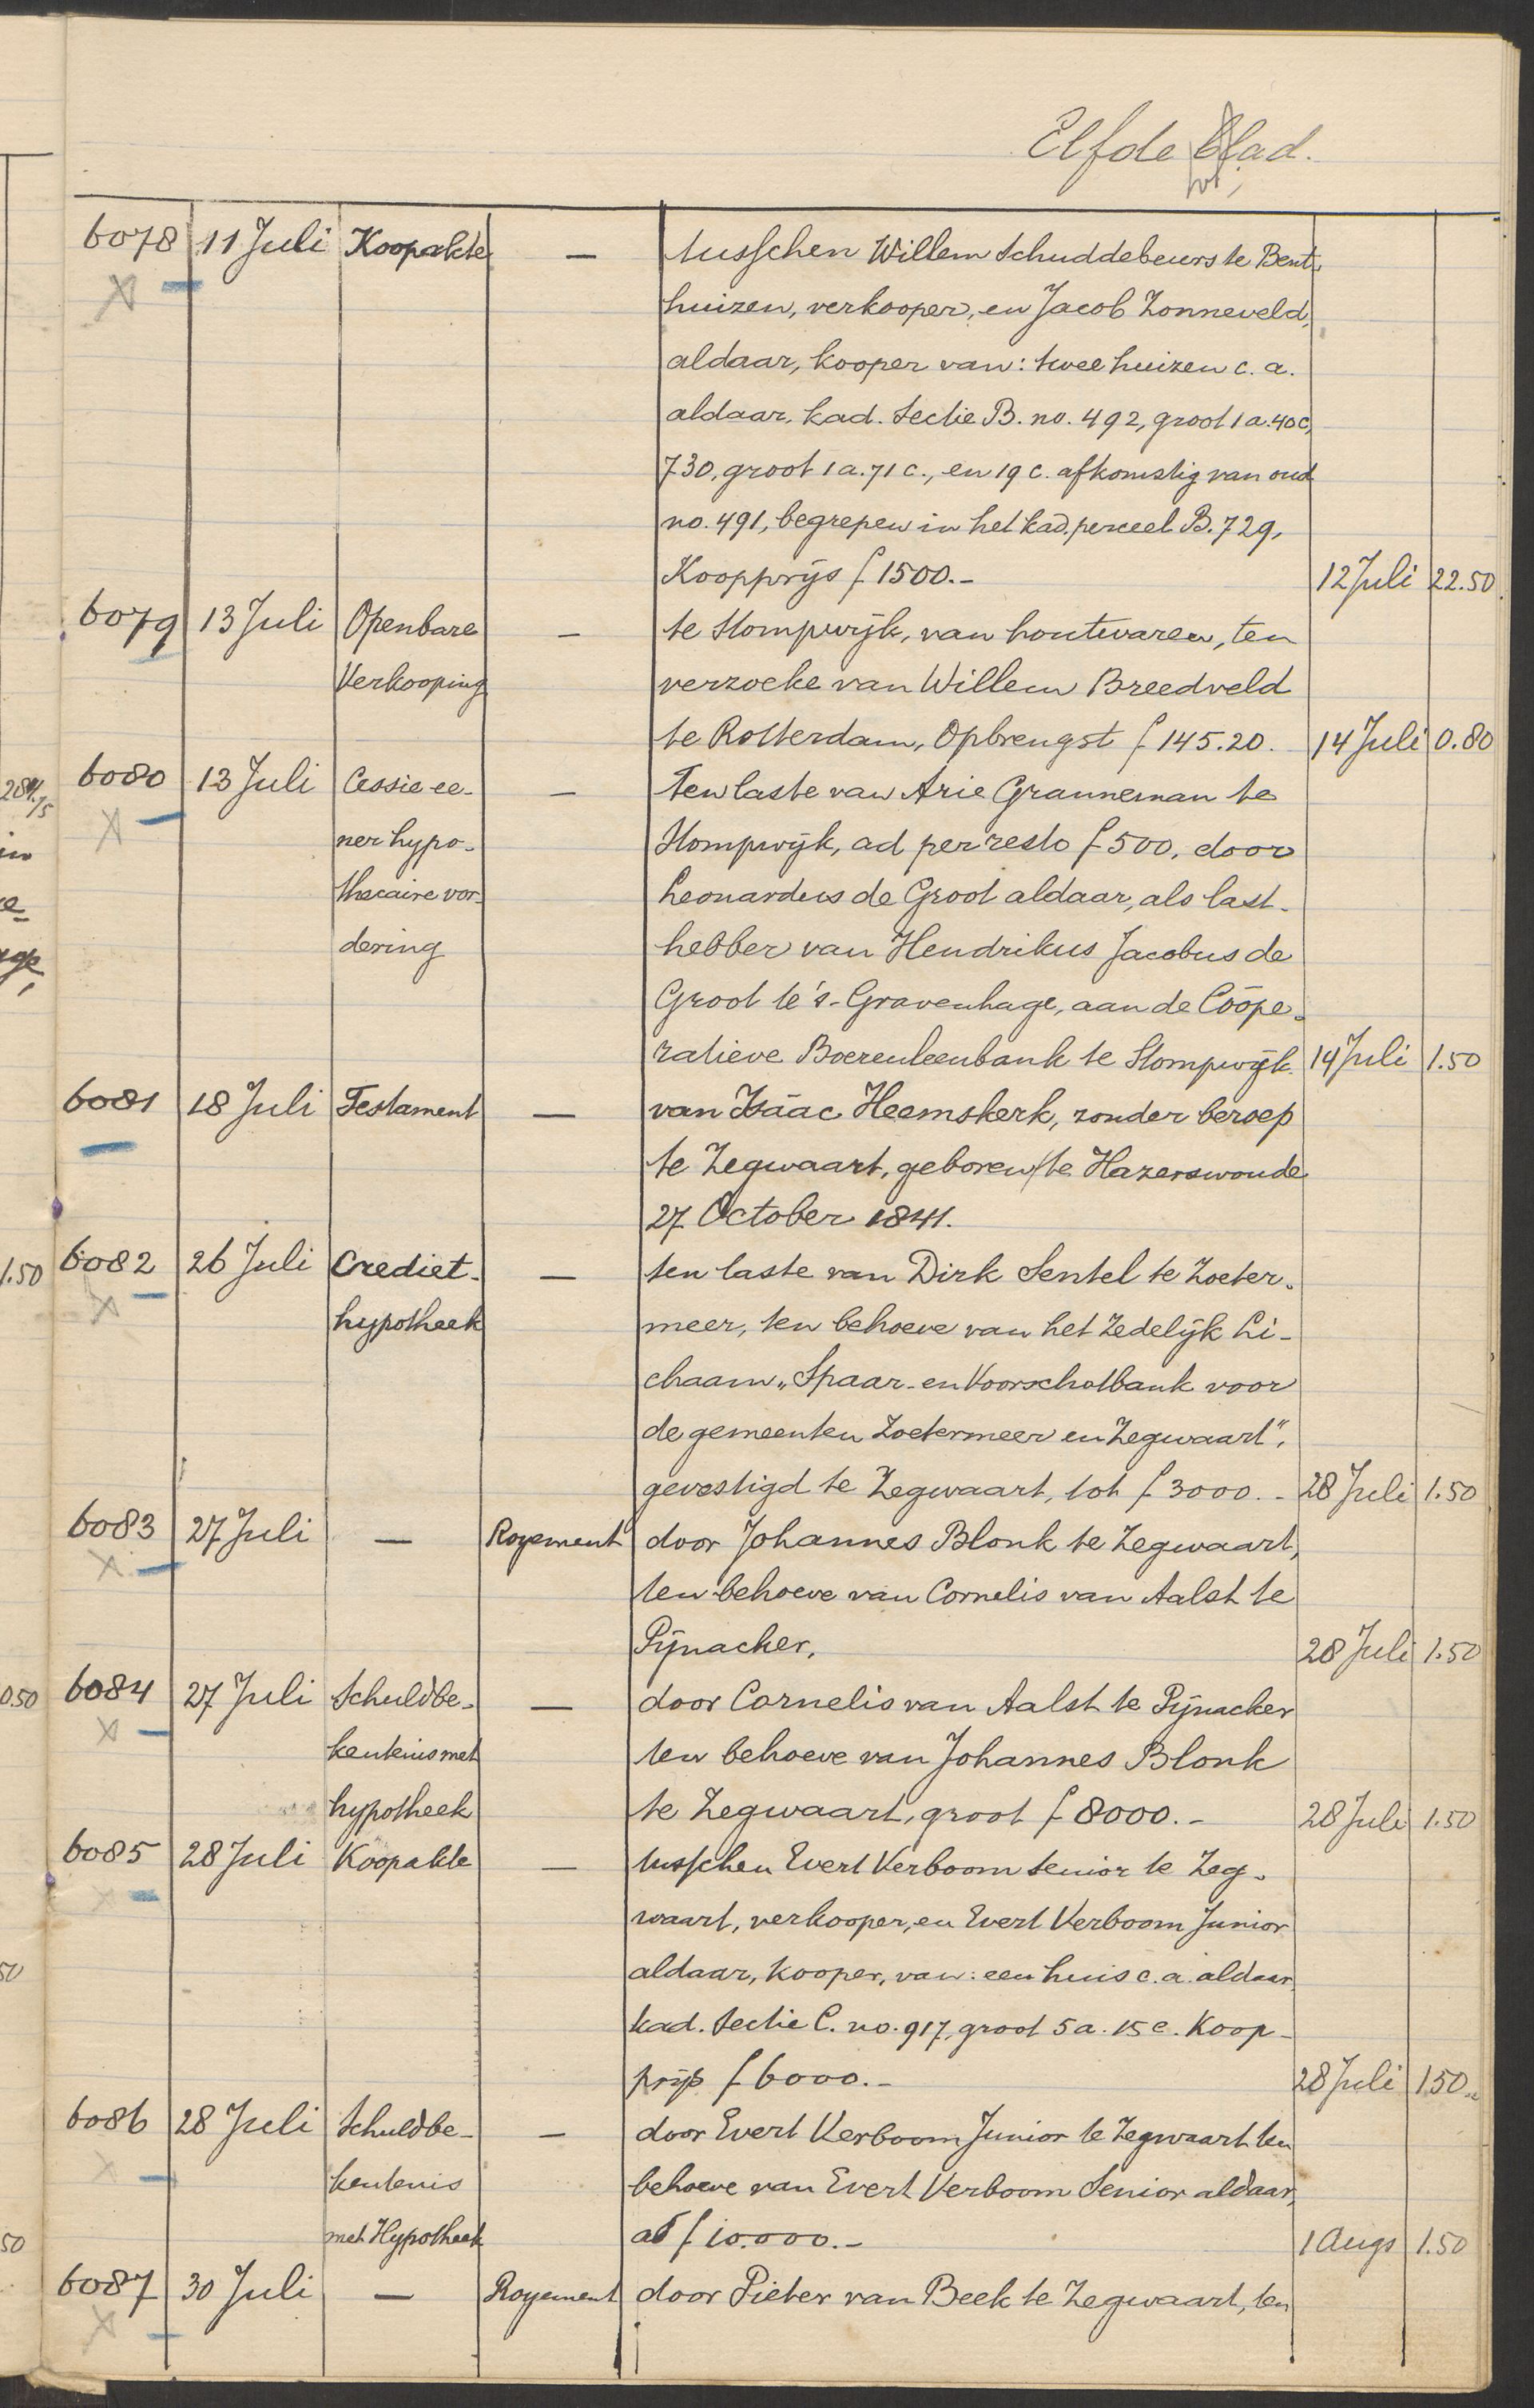 Elfde blad.
6078 11 Juli Koopakte — tusschen Willem Schuddebeurs te Bent-
huizen, verkooper, en Jacob Zonneveld,
aldaar, kooper van: twee huizen c.a.
aldaar, kad. Sectie B. no. 492, groot 1 a. 40 c,
730, groot 1 a. 71 c., en 19 c. afkomstig van oud
no. 491, begrepen in het kad. perceel B. 729,
Koopprijs f 1500.- 12 Juli 22.50
6079 13 Juli Openbare — te Stompwijk, van houtwaren, ten
Verkooping verzoeke van Willem Breedveld
te Rotterdam, Opbrengst f 145.20. 14 Juli 0.80
6080 13 Juli Cessie ee- — Ten laste van Arie Granneman te
ner hypo- Stompwijk, ad per resto f 500, door
thecaire vor- Leonardus de Groot aldaar, als last-
dering hebber van Hendrikus Jacobus de
Groot te 's-Gravenhage, aan de Coöpe-
ratieve Boerenleenbank te Stompwijk. 14 Juli 1.50
6081 18 Juli Testament — van Isäac Heemskerk, zonder beroep
te Zegwaart, geboren te Hazerswoude
27 October 1841.
6082 26 Juli Crediet- — ten laste van Dirk Sentel te Zoeter-
hypotheek meer, ten behoeve van het Zedelijk Li-
chaam „Spaar- en Voorschotbank voor
de gemeenten Zoetermeer en Zegwaart",
gevestigd te Zegwaart, tot f 3000.- 28 Juli 1.50
6083 27 Juli — Royement door Johannes Blonk te Zegwaart,
ten behoeve van Cornelis van Aalst te
Pijnacker, 28 Juli 1.50
6084 27 Juli Schuldbe- — door Cornelis van Aalst te Pijnacker
kentenis met ten behoeve van Johannes Blonk
hypotheek te Zegwaart, groot f 8000.- 28 Juli 1.50
6085 28 Juli Koopakte — tusschen Evert Verboom Senior te Zeg-
waart, verkooper, en Evert Verboom Junior
aldaar, kooper, van: een huis c.a. aldaar,
kad. Sectie C. no. 917, groot 5 a. 15 c. Koop-
prijs f 6000.- 28 Juli 150.-
6086 28 Juli Schuldbe- — door Evert Verboom Junior te Zegwaart ten
kentenis behoeve van Evert Verboom Senior aldaar,
met Hypotheek ad f 10.000.- 1 Augs 1.50
6087 30 Juli — Royement door Pieter van Beek te Zegwaart, ten